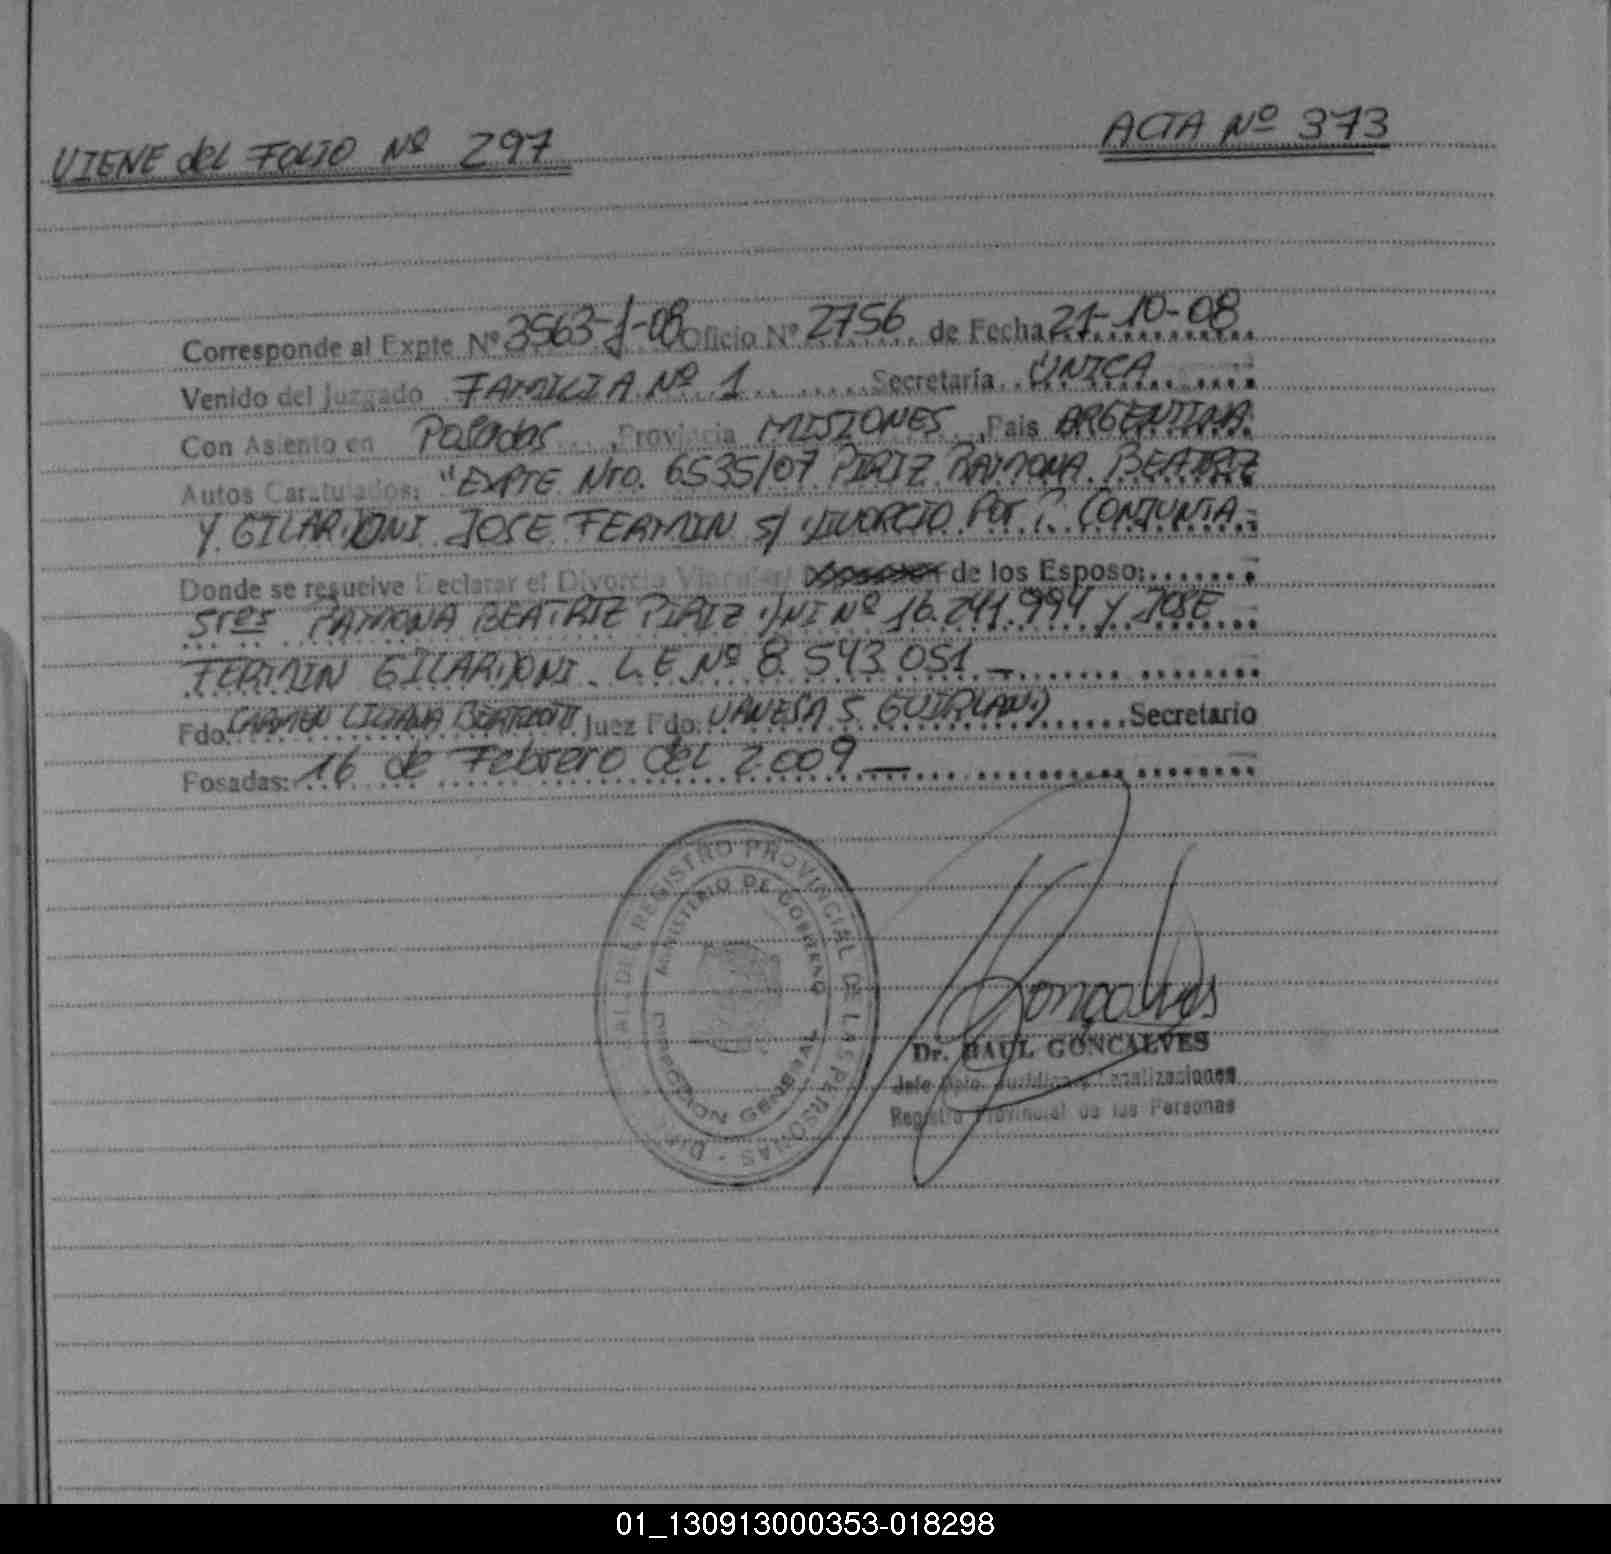 VIENE del FOLIO Nº 297
ACTA Nº 373
Corresponde al Expte Nº 3563-J-08 Oficio Nº 2756 de Fecha 21-10-08
Venido del Juzgado FAMILIA Nº 1 Secretaría ÚNICA
Con Asiento en Posadas, Provincia MISIONES, País ARGENTINA
Autos Caratulados: "EXPTE Nro. 6535/07 PIRIZ RAMONA BEATRIZ
Y GILARDONI JOSE FERMIN S/ DIVORCIO POR P. CONJUNTA
Donde se resuelve Declarar el Divorcio Vincular/ de los Esposo:
Sres RAMONA BEATRIZ PIRIZ DNI Nº 16.241.994 y JOSE
FERMIN GILARDONI L.E. Nº 8.543.051 -
Fdo. CARMEN LILIANA Juez Fdo. VANESA S. Secretario
Posadas: 16 de Febrero del 2.009 —
DIRECCION GENERAL DEL REGISTRO PROVINCIAL DE LAS PERSONAS
MINISTERIO DE GOBIERNO
DIRECCION GENERAL
Goncalves
Dr. RAUL GONÇALVES
Jefe Dpto. Jurídico y Legalizaciones
Registro Provincial de las Personas
01_130913000353-018298